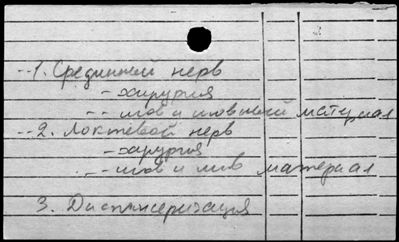 1. Срединный нерв
- хирургия
- шов и шовный материал
2. Локтевой нерв
- хирургия
- шов и шов материал
3. Диспансеризация